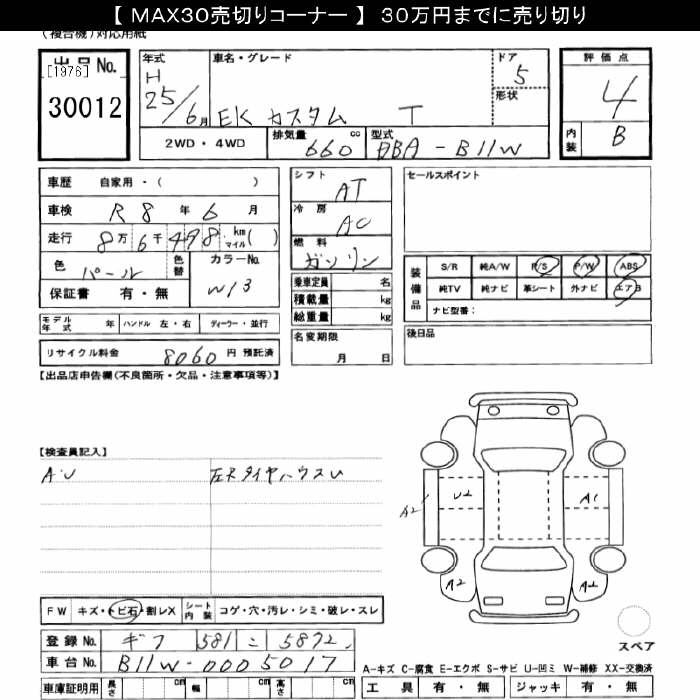 【 MAX30売切りコーナー 】 30万円までに売り切り
(複合機)対応用紙
出品No.
[1976]
30012
年式 車名・グレード ドア 評価点
H 25/6月 EK カスタム T 5 4
形状
内装 B
2WD・4WD 排気量 660 cc 型式 DBA-B11W
車歴 自家用・( )
車検 R8年6月
走行 8万6千498 km マイル ( )
色 パール 色替 カラーNo. W13
保証書 有・無
シフト AT
冷房 AC
燃料 ガソリン
乗車定員 名
積載量 kg
総重量 kg
セールスポイント
装備品 S/R 純A/W P/S P/W ABS
純TV 純ナビ 革シート 外ナビ エアB
ナビ型番:
モデル年式 年 ハンドル 左・右 ディーラー・並行
名変期限 月 日
後日品
リサイクル料金 8060 円 預託済
【出品店申告欄(不良箇所・欠品・注意事項等)】
【検査員記入】
A・U 左Rタイヤハウス U
A2 U2 A1
A2 A2
FW キズ・トビ石・割レX シート内装 コゲ・穴・汚レ・シミ・破レ・スレ
スペア
登録No. ギフ 581 ニ 5872
車台No. B11W-0005017
A-キズ C-腐食 E-エクボ S-サビ U-凹ミ W-補修 XX-交換済
車庫証明用 長さ cm 幅 cm 高さ cm 工具 有・無 ジャッキ 有・無